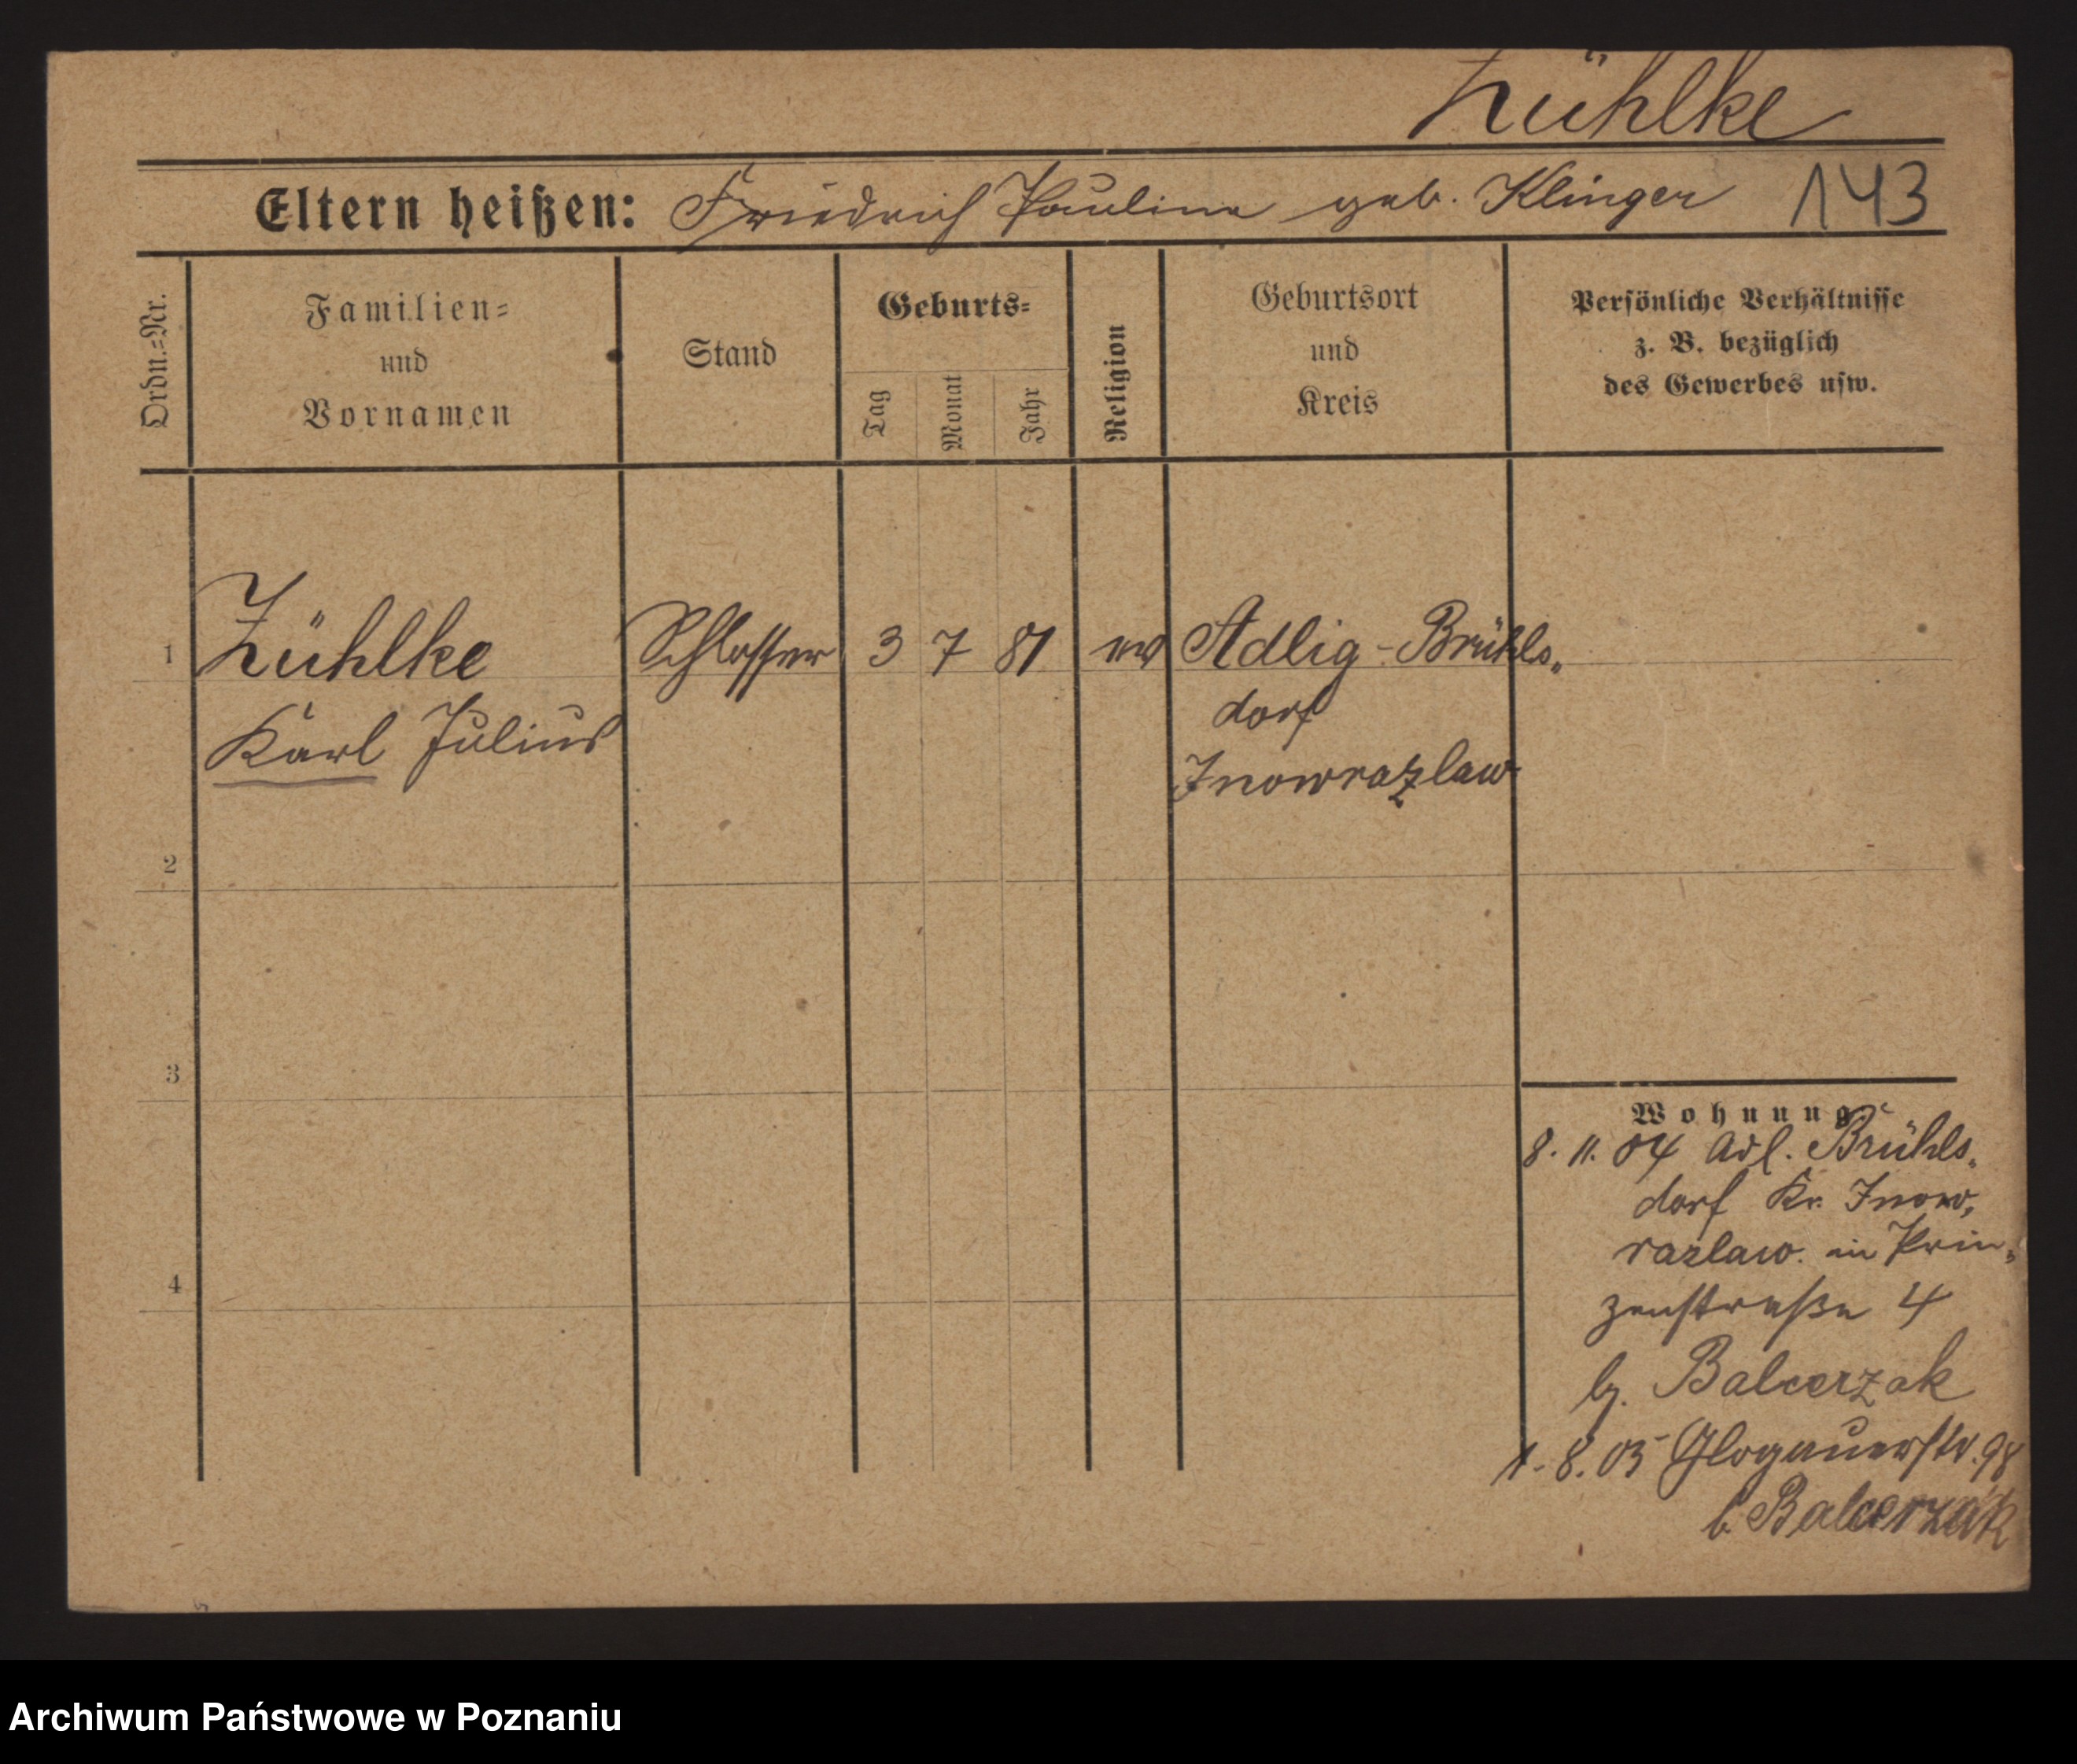 Zühlke
Eltern heißen: Friedrich Pauline geb. Klinger 143
Ordn.=Nr.
Familien=
und
Vornamen
Stand
Geburts=
Tag
Monat
Jahr
Religion
Geburtsort
und
Kreis
Persönliche Verhältnisse
z. B. bezüglich
des Gewerbes usw.
1 Zühlke Schlosser 3 7 81 ev Adlig-Brühls„
Karl Julius dorf
Inowrazlaw
2
3
4
Wohnung:
8. 11. 04 Adl. Brühls„
dorf Kr. Inow„
razlaw. in Prin„
zenstraße 4
b. Balcerzak
1. 8. 05 Glogauerstr. 98
b. Balcerzak
Archiwum Państwowe w Poznaniu